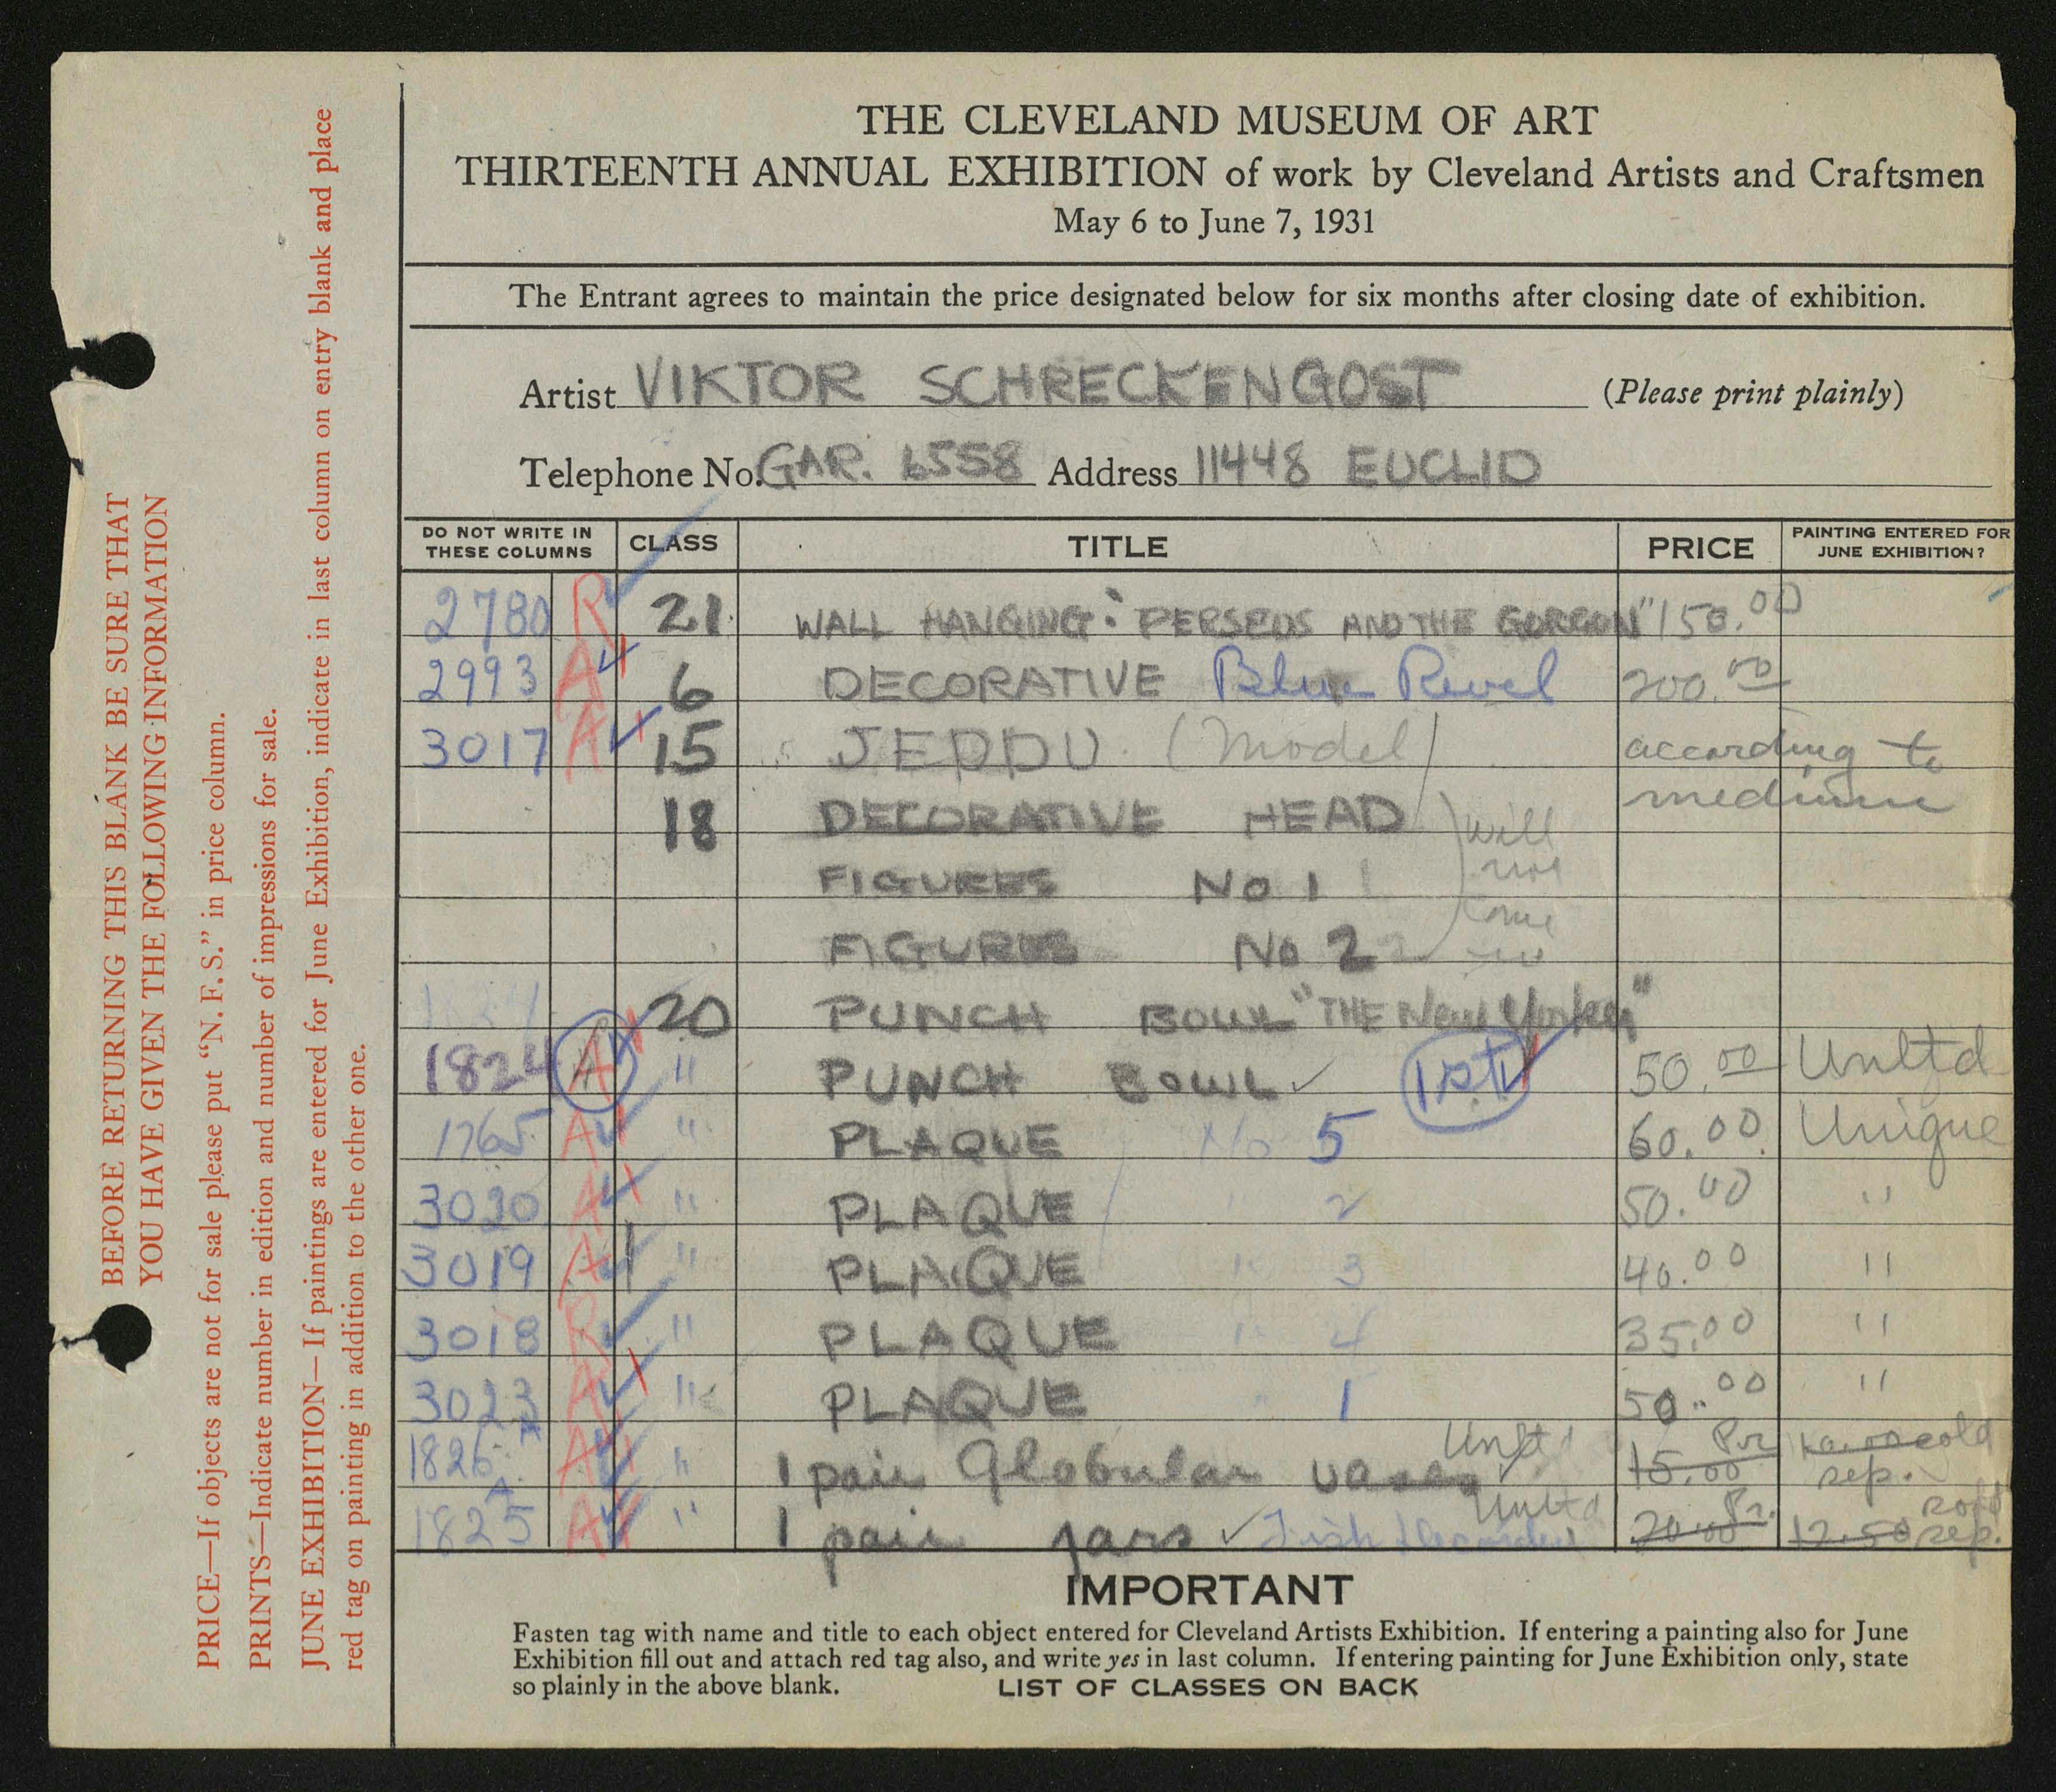 THE CLEVELAND MUSEUM OF ART
THIRTEENTH ANNUAL EXHIBITION of work by Cleveland Artists and Craftsmen
May 6 to June 7, 1931
The Entrant agrees to maintain the price designated below for six months after closing date of exhibition.
Artist VIKTOR SCHRECKENGOST (Please print plainly)
Telephone No. GAR. 6558 Address 11448 EUCLID
DO NOT WRITE IN THESE COLUMNS CLASS TITLE PRICE PAINTING ENTERED FOR JUNE EXHIBITION?
2780 R 21 WALL HANGING: "PERSEUS AND THE GORGON" 150.00
2993 A 6 DECORATIVE Blue Revel 200.00
3017 A 15 JEDDU (Model) according to
18 DECORATIVE HEAD will medium
FIGURES No 1 not
FIGURES No 2 come in
1824 20 PUNCH BOWL "THE New Yorker"
1824 A " PUNCH BOWL ✓ 1st 50.00 Unltd
1765 A " PLAQUE No 5 60.00 Unique
3020 A " PLAQUE " 2 50.00 "
3019 A " PLAQUE " 3 40.00 "
3018 R " PLAQUE " 4 35.00 "
3023 A " PLAQUE " 1 50.00 "
1826 A " 1 pair Globular vases Unltd 15.00 Pr. sold rep.
1825 A " 1 pair jars ✓ Unltd 20.00 Pr. 12.50 rep.
IMPORTANT
Fasten tag with name and title to each object entered for Cleveland Artists Exhibition. If entering a painting also for June
Exhibition fill out and attach red tag also, and write yes in last column. If entering painting for June Exhibition only, state
so plainly in the above blank. LIST OF CLASSES ON BACK
BEFORE RETURNING THIS BLANK BE SURE THAT
YOU HAVE GIVEN THE FOLLOWING INFORMATION
PRICE—If objects are not for sale please put "N. F. S." in price column.
PRINTS—Indicate number in edition and number of impressions for sale.
JUNE EXHIBITION—If paintings are entered for June Exhibition, indicate in last column on entry blank and place
red tag on painting in addition to the other one.